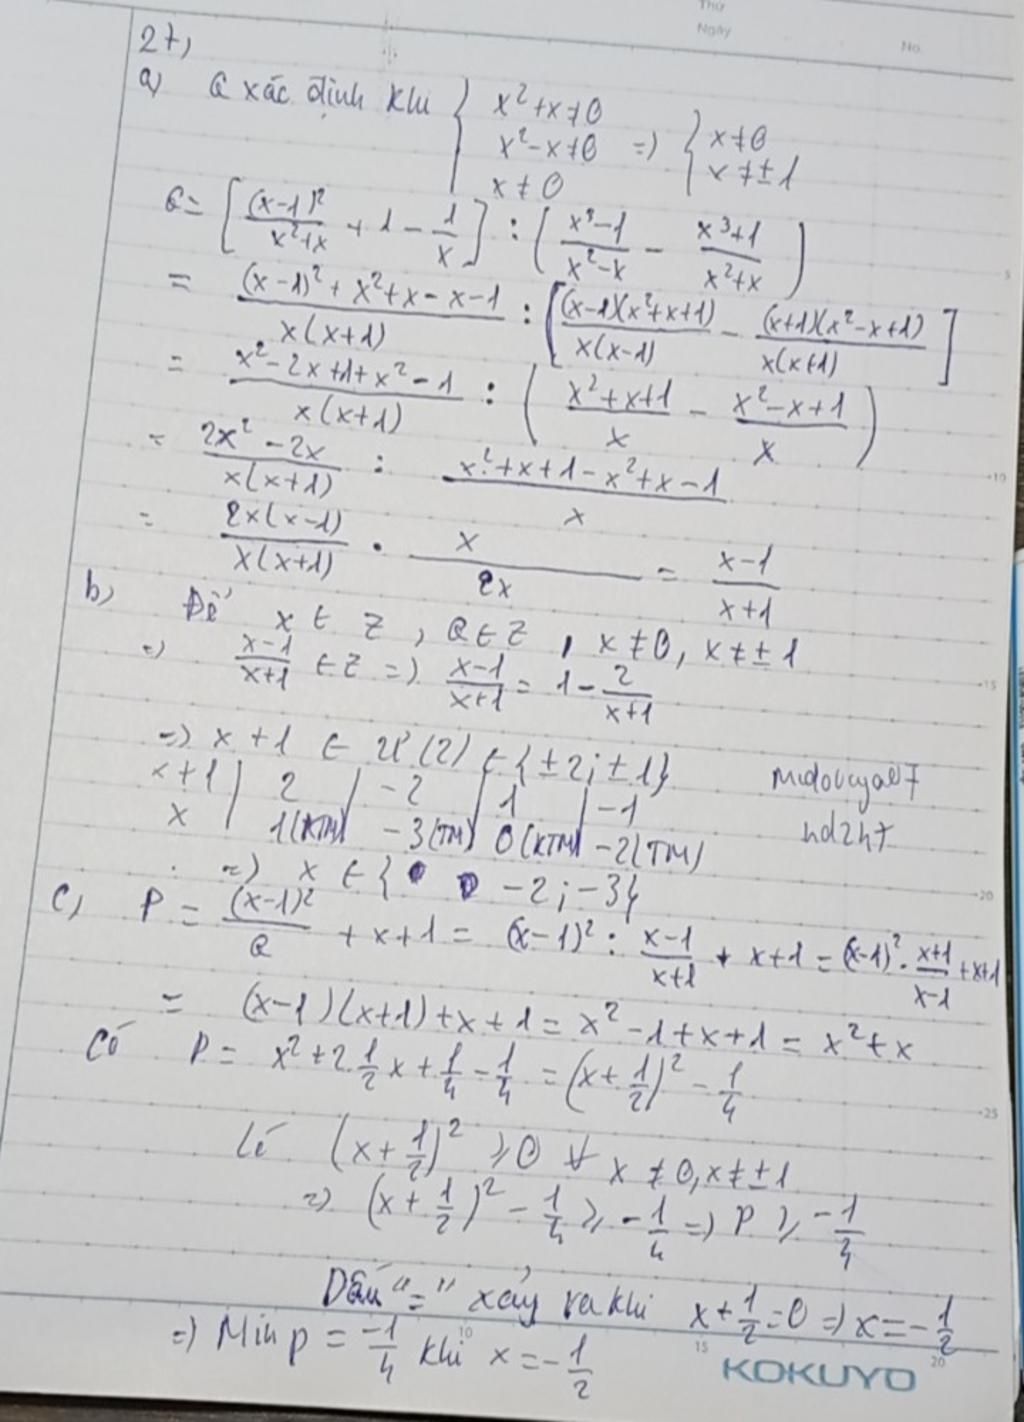 Thứ
Ngày
No.
27,
a, Q xác định khi { x²+x≠0 ; x²-x≠0 ; x≠0 => { x≠0 ; x≠±1
Q = [ (x-1)²/(x²+x) + 1 - 1/x ] : ( (x³-1)/(x²-x) - (x³+1)/(x²+x) )
= ((x-1)² + x²+x-x-1)/(x(x+1)) : [ (x-1)(x²+x+1)/(x(x-1)) - (x+1)(x²-x+1)/(x(x+1)) ]
= (x²-2x+1+x²-1)/(x(x+1)) : ( (x²+x+1)/x - (x²-x+1)/x )
= (2x²-2x)/(x(x+1)) : (x²+x+1-x²+x-1)/x
= 2x(x-1)/(x(x+1)) . x/2x = (x-1)/(x+1)
b, Để x ∈ Z, Q ∈ Z, x≠0, x≠±1
=> (x-1)/(x+1) ∈ Z => (x-1)/(x+1) = 1 - 2/(x+1)
=> x+1 ∈ Ư(2) ∈ {±2; ±1}
x+1 | 2 | -2 | 1 | -1
x | 1(KTM) -3(TM) 0(KTM) -2(TM)
hd2h7
=> x ∈ { -2; -3}
c, P = (x-1)²/Q + x+1 = (x-1)² : (x-1)/(x+1) + x+1 = (x-1)² . (x+1)/(x-1) + x+1
= (x-1)(x+1)+x+1 = x²-1+x+1 = x²+x
Có P = x²+2.1/2x+1/4-1/4 = (x+1/2)² - 1/4
(x+1/2)² ≥ 0 ∀ x≠0, x≠±1
=> (x+1/2)² - 1/4 ≥ -1/4 => P ≥ -1/4
Dấu "=" xảy ra khi x+1/2=0 => x=-1/2
=> Min P = -1/4 khi x=-1/2
KOKUYO
5
10
15
20
25
10
15
20